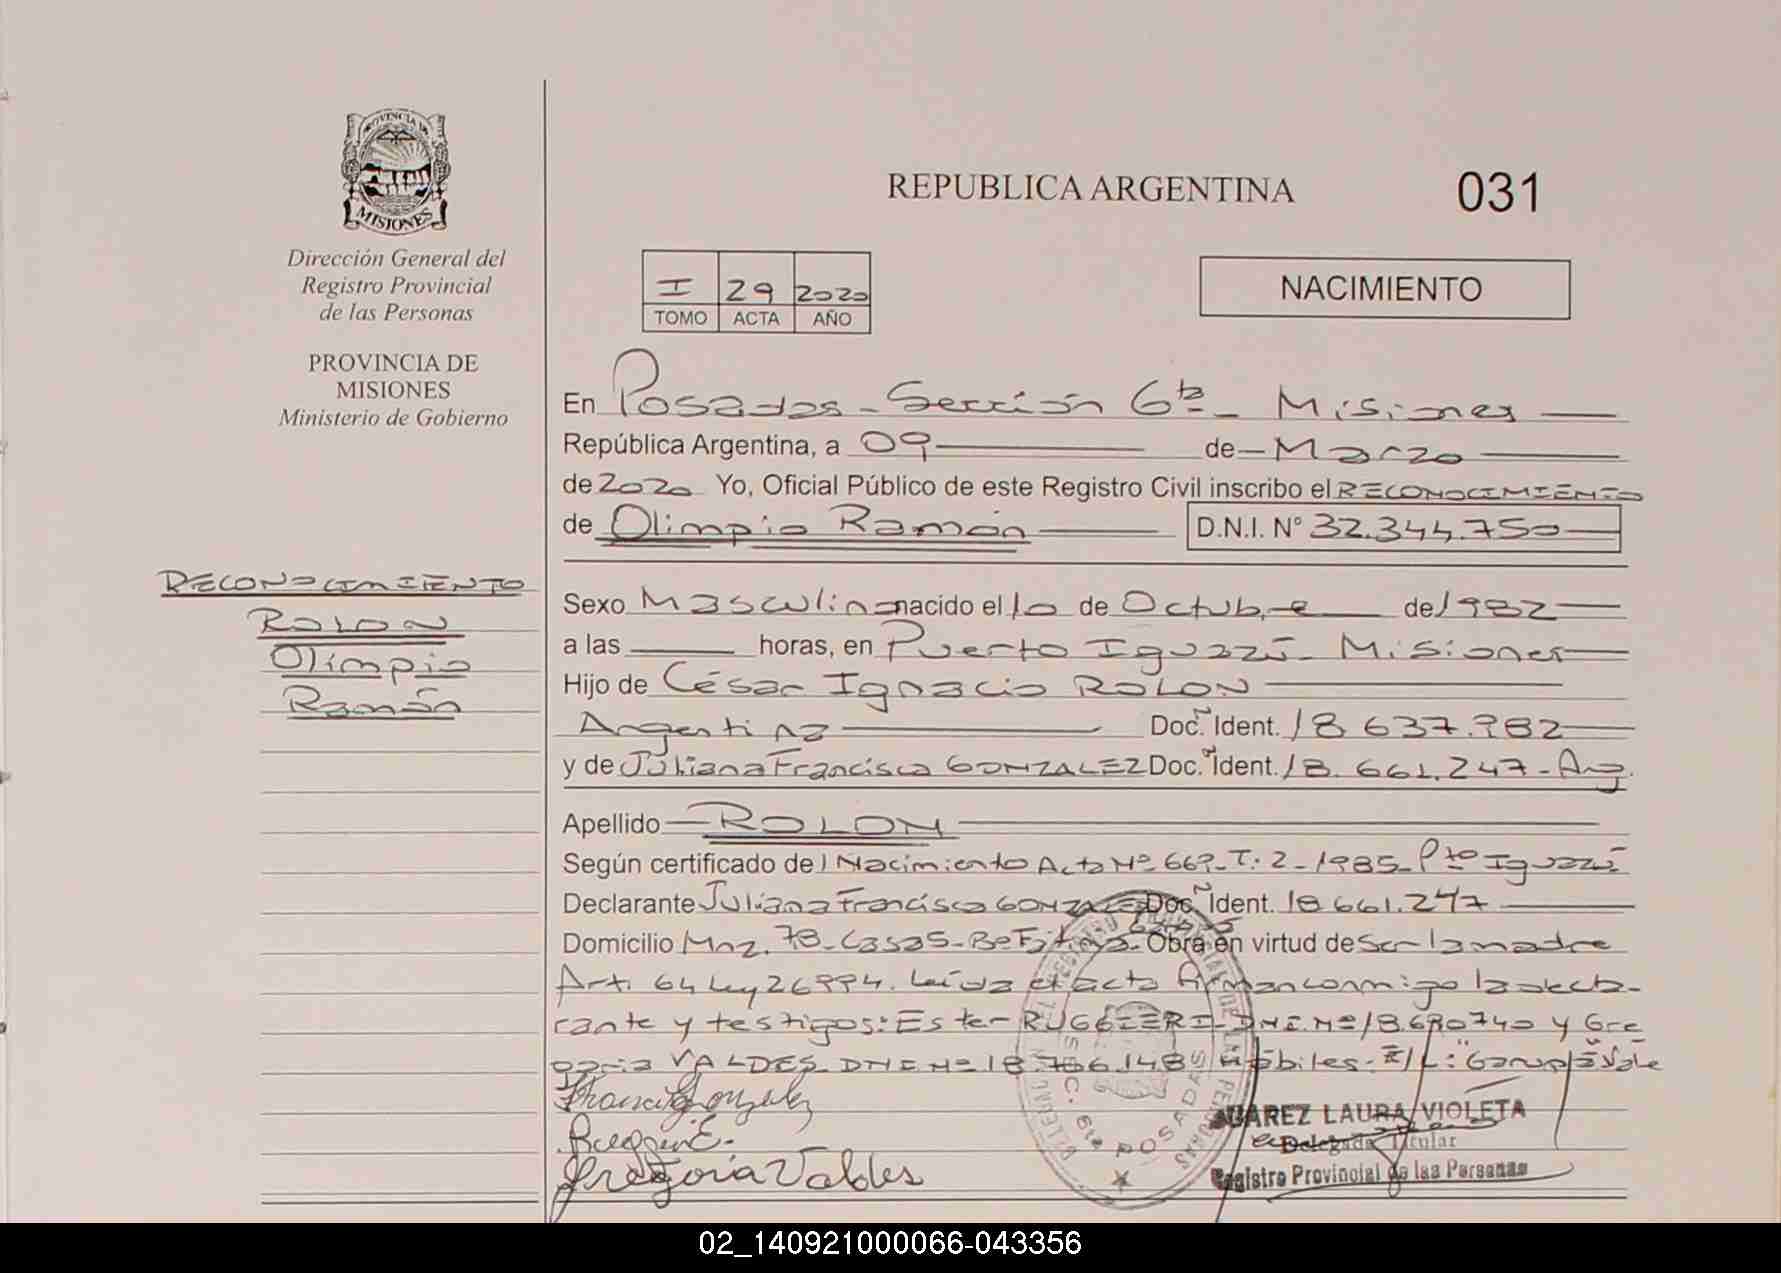 PROVINCIA DE
MISIONES
Dirección General del
Registro Provincial
de las Personas
PROVINCIA DE
MISIONES
Ministerio de Gobierno
RECONOCIMIENTO
ROLON
Olimpio
Ramón
REPUBLICA ARGENTINA
031
I 29 2020
TOMO ACTA AÑO
NACIMIENTO
En Posadas - Sección 6ta - Misiones
República Argentina, a 09 de Marzo
de 2020 Yo, Oficial Público de este Registro Civil inscribo el RECONOCIMIENTO
de Olimpio Ramón D.N.I. N° 32.344.750
Sexo Masculino nacido el 10 de Octubre de 1982
a las horas, en Puerto Iguazú - Misiones
Hijo de César Ignacio ROLON
Argentina Doc. Ident. 18 637.982
y de Juliana Francisca GONZALEZ Doc. Ident. 18.661.247 - Arg.
Apellido ROLON
Según certificado de Nacimiento Acta Nº 669 - T: 2 - 1985 - Pto Iguazú
Declarante Juliana Francisca GONZALEZ Doc. Ident. 18 661.247
Domicilio Mnz. 78 - Casa 5 - Obra en virtud de ser la madre
Art. 64 Ley 26994. Leída el acta firman conmigo la decla-
rante y testigos: Ester RUGGIERI - DNI Nº 18.690740 y Gre
goria VALDES DNI Nº 18 766.148 Hábiles - E/L: "Garupá" Vale
Francisca Gonzalez
Ruggieri E.
Gregoria Valdes
SECC. 6ta POSADAS
JUAREZ LAURA VIOLETA
Delegada Titular
Registro Provincial de las Personas
02_140921000066-043356